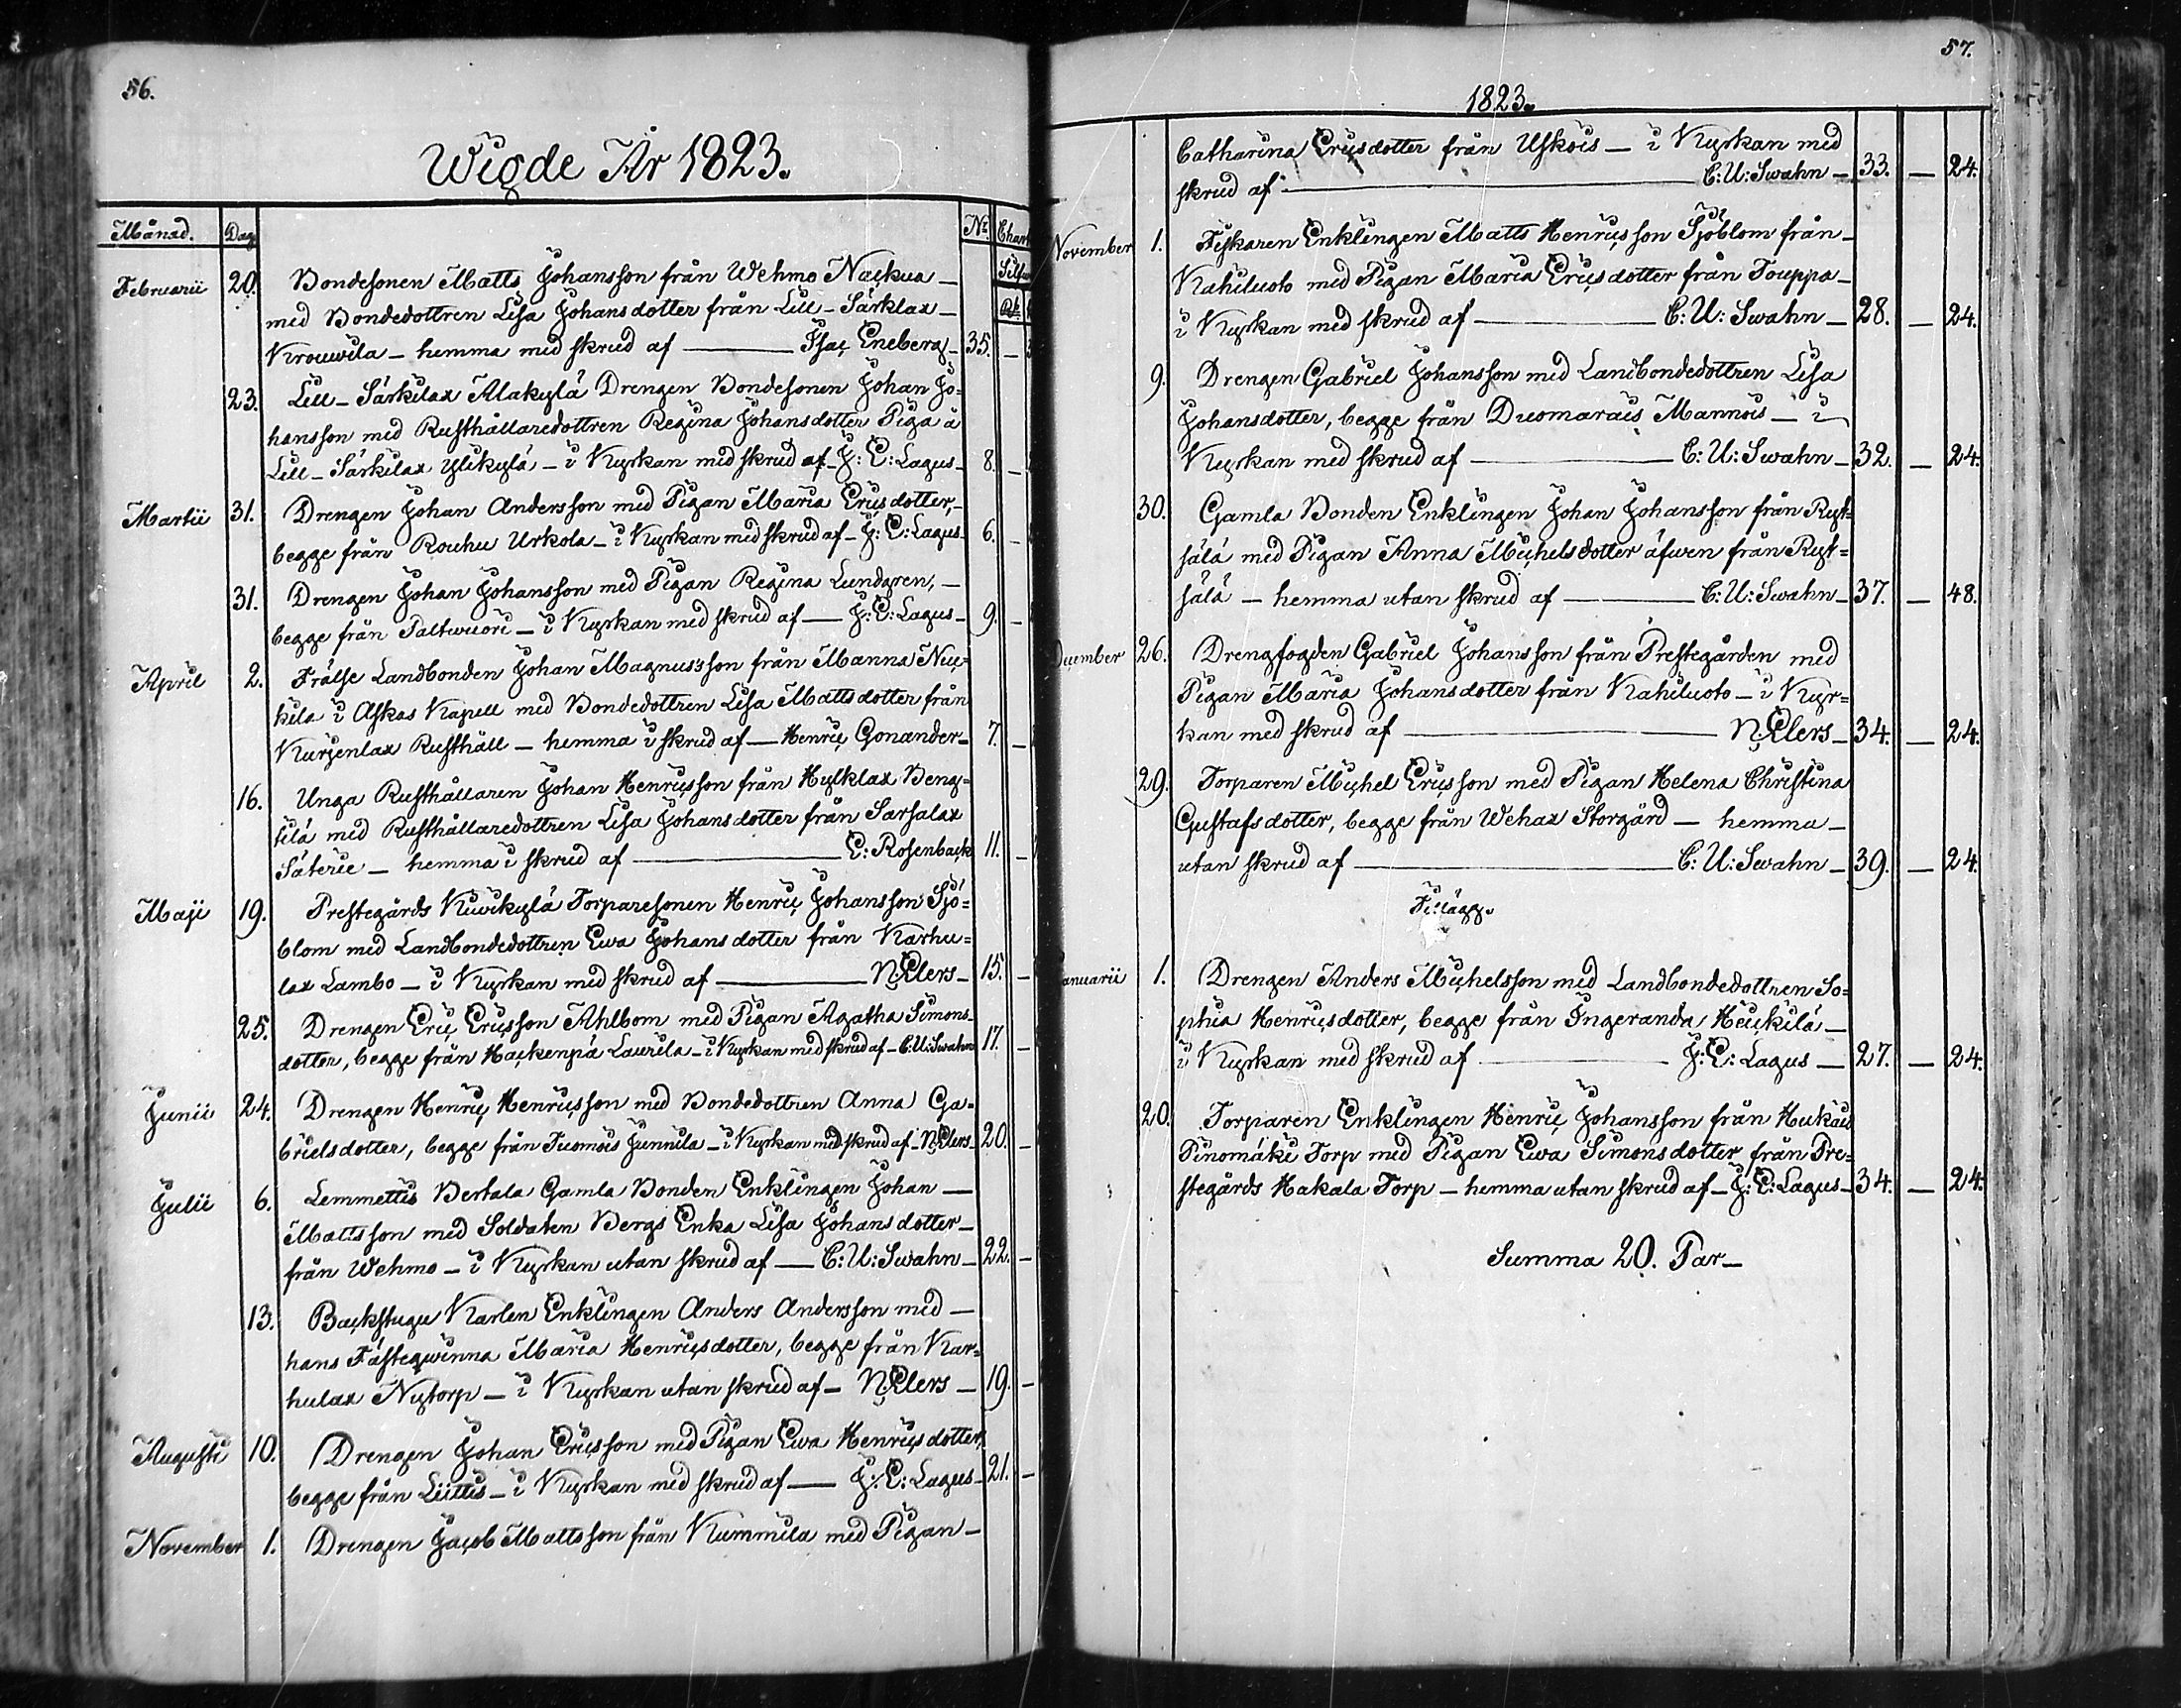 56.
Wigde År 1823.
Månad. Dag No. Chart
Silfwer
Rbl.
Februarii 20. Bondesonen Matts Johansson från Wehmo Nackua —
med Bondedottren Lisa Johansdotter från Lill-Särklax —
Krouwila — hemma med skrud af — Isac Eneberg — 35. —
23. Lill-Särkilax Alakylä Drengen Bondesonen Johan Jo=
hansson med Rusthållaredottren Regina Johansdotter Piga å
Lill-Särkilax Ylikylä — i Kyrkan med skrud af — J: E: Lagus — 8. —
Martii 31. Drengen Johan Andersson med Pigan Maria Ericsdotter, —
begge från Rouhu Urkola — i Kyrkan med skrud af — J: E: Lagus — 6. —
31. Drengen Johan Johansson med Pigan Regina Lundgren, —
begge från Paltwuori — i Kyrkan med skrud af — J: E: Lagus — 9. —
April 2. Frälse Landbonden Johan Magnus'son från Manna Niu=
kila i Askas Kapell med Bondedottren Lisa Mattsdotter från
Kursenlax Rusthåll — hemma i skrud af — Henric Gonander — 7. —
16. Unga Rusthållaren Johan Henricsson från Hylklax Beng=
tilä med Rusthållaredottren Lisa Johansdotter från Sarsalax
Säterie — hemma i skrud af — E: Rosenback 11. —
Maji 19. Prestegårds Kuwikylä Torparesonen Henric Johansson Sjö=
blom med Landbondedottren Ewa Johansdotter från Karhu=
lax Lambo — i Kyrkan med skrud af — N: Elers — 15. —
25. Drengen Eric Ericsson Ahlbom med Pigan Agatha Simons=
dotter, begge från Hackenpä Laurila — i Kyrkan med skrud af — C: U: Swahn 17. —
Junii 24. Drengen Henric Henricsson med Bondedottren Anna Ga=
brielsdotter, begge från Tuomois Junnila — i Kyrkan med skrud af — N: Elers — 20. —
Julii 6. Lemmettis Bertala Gamla Bonden Enklingen Johan —
Matisson med Soldaten Bergs Enka Lisa Johansdotter —
från Wehmo — i Kyrkan utan skrud af — C: U: Swahn — 22. —
13. Backstugu Karlen Enklingen Anders Andersson med —
hans Fästeqwinna Maria Henricsdotter, begge från Kar=
hulax Nytorp — i Kyrkan utan skrud af — N: Elers — 19. —
Augusti 10. Drengen Johan Ericsson med Pigan Ewa Henricsdotter,
begge från Liittis — i Kyrkan med skrud af — J: E: Lagus — 21. —
November 1. Drengen Jacob Mattsson från Kummila med Pigan —
57.
1823.
Catharina Ericsdotter från Uskois — i Kyrkan med
skrud af — C: U: Swahn — 33. — 24.
November 1. Fiskaren Enklingen Matts Henricsson Sjöblom från —
Kahiluoto med Pigan Maria Ericsdotter från Touppa —
i Kyrkan med skrud af — C: U: Swahn — 28. — 24.
9. Drengen Gabriel Johansson med Landbondedottren Lisa
Johansdotter, begge från Duomarais Mannois — i
Kyrkan med skrud af — C: U: Swahn — 32. — 24.
30. Gamla Bonden Enklingen Johan Johansson från Ryt=
sälä med Pigan Anna Michelsdotter äfwen från Ryt=
sälä — hemma utan skrud af — C: U: Swahn — 37. — 48.
December 26. Drengfogden Gabriel Johansson från Prestegården med
Pigan Maria Johansdotter från Kahiluoto — i Kyr=
kan med skrud af — N: Elers — 34. — 24.
29. Torparen Michel Ericsson med Pigan Helena Christina
Gustafsdotter, begge från Wehax Storgård — hemma —
utan skrud af — C: U: Swahn — 39. — 24.
Tillägg.
Januarii 1. Drengen Anders Michelsson med Landbondedottren So=
phia Henricsdotter, begge från Ingeranda Heickilä —
i Kyrkan med skrud af — J: E: Lagus — 27. — 24.
20. Torparen Enklingen Henric Johansson från Hukais
Pinomäki Torp med Pigan Ewa Simonsdotter från Pre=
stegårds Hakala Torp — hemma utan skrud af — J: E: Lagus — 34. — 24.
Summa 20. Par —